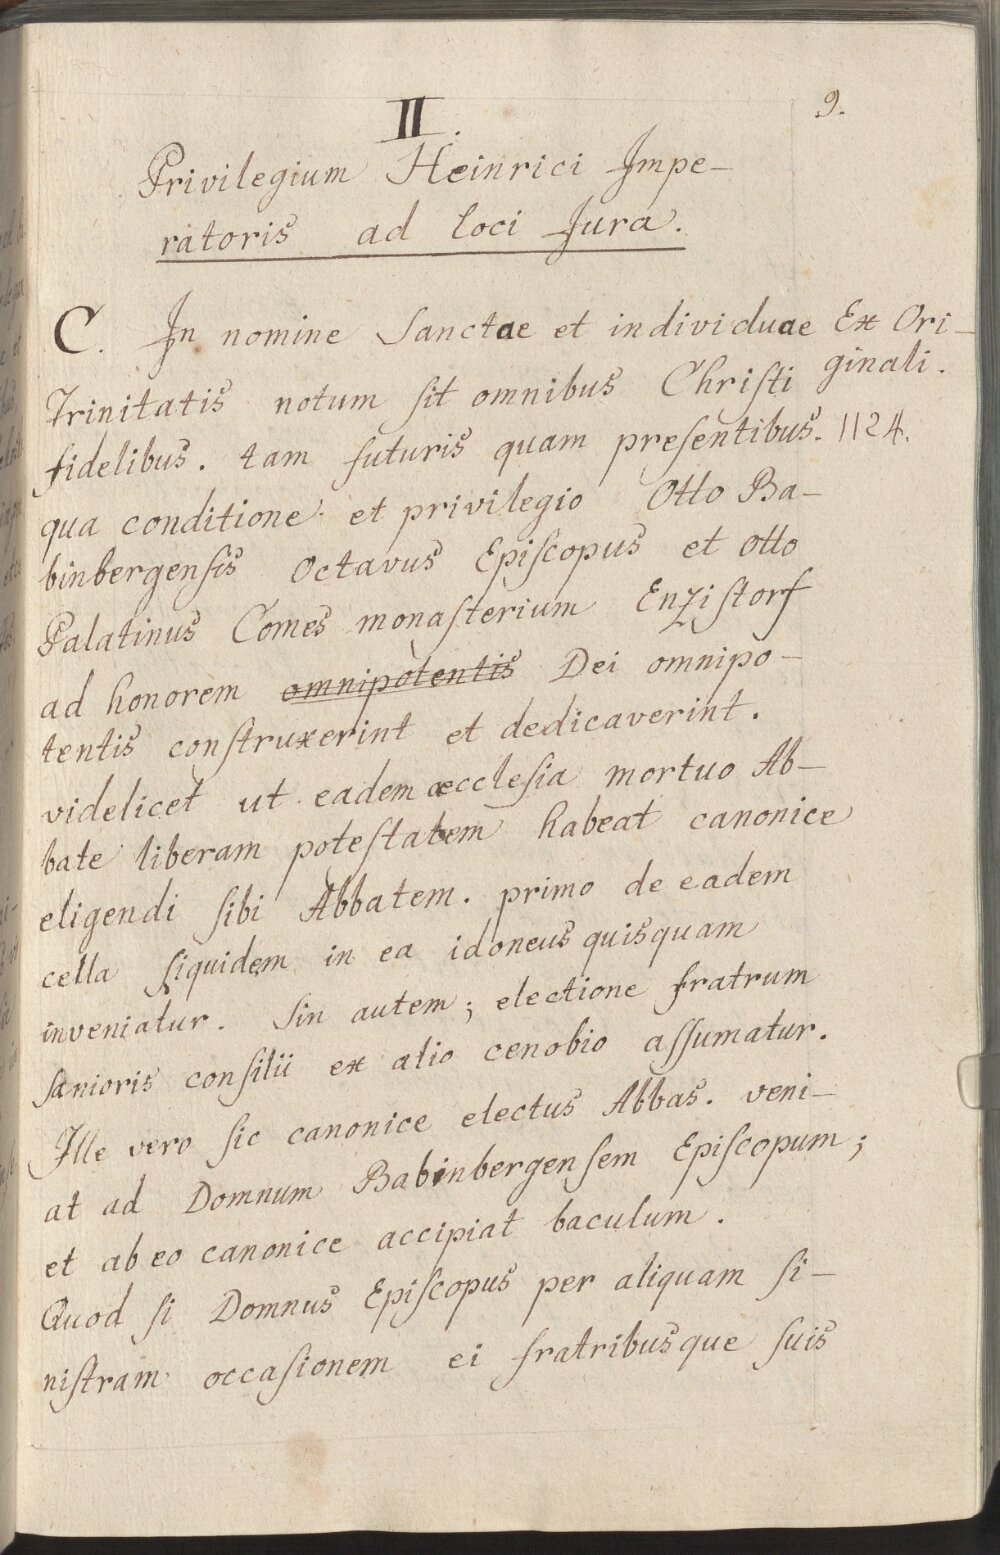 9.
II.
Privilegium Heinrici Impe-
ratoris ad loci Jura.
C. In nomine Sanctae et individuae
Trinitatis notum ſit omnibus Chriſti
fidelibus. tam futuris quam preſentibus.
qua conditione et privilegio Otto Ba-
binbergenſis Octavus Epiſcopus et Otto
Palatinus Comes monaſterium Enziſtorf
ad honorem omnipotentis Dei omnipo-
tentis conſtruxerint et dedicaverint.
videlicet ut eadem æccleſia mortuo Ab-
bate liberam poteſtatem habeat canonice
eligendi ſibi Abbatem. primo de eadem
cella ſiquidem in ea idoneus quisquam
inveniatur. Sin autem; electione fratrum
ſanioris conſilii ex alio cenobio aſſumatur.
Ille vero ſic canonice electus Abbas. veni-
at ad Domnum Babinbergenſem Epiſcopum;
et ab eo canonice accipiat baculum.
Quod ſi Domnus Epiſcopus per aliquam ſi-
niſtram occaſionem ei fratribusque ſuis
Ex Ori-
ginali.
1124.